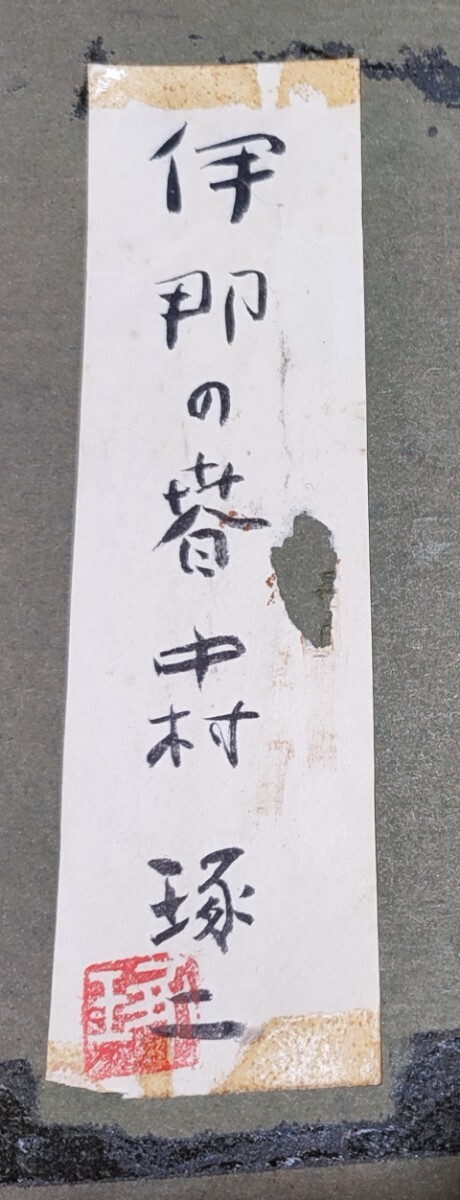 伊那の春 中村 琢二